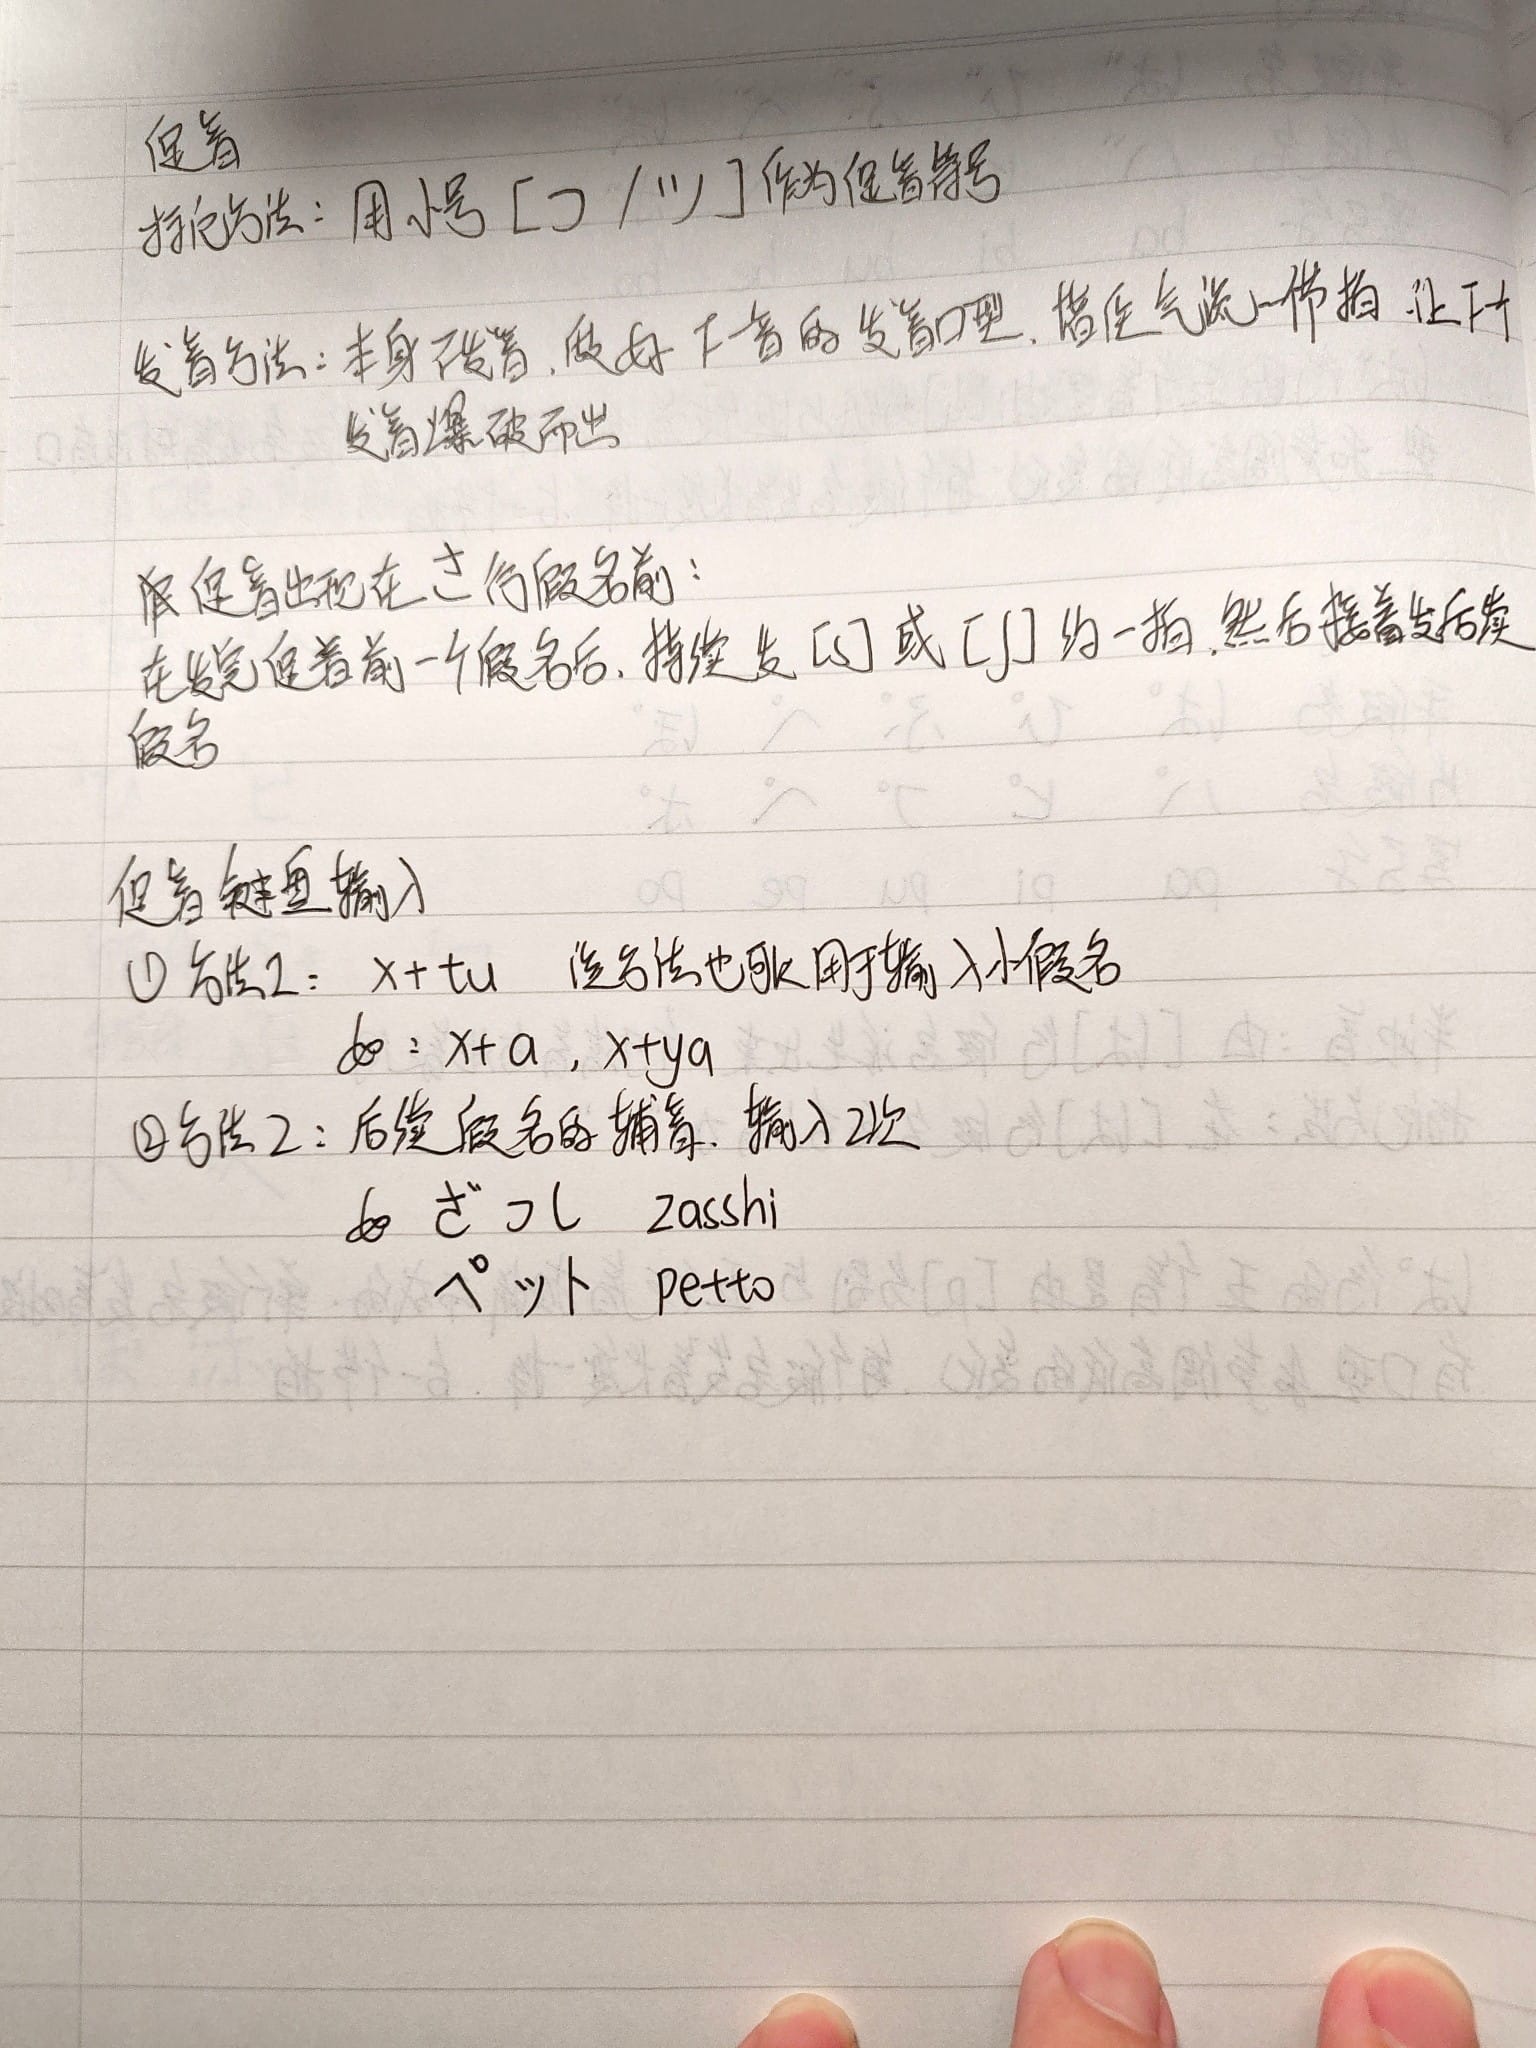 促音
标记方法：用小号［つ/ツ］作为促音符号
发音方法：本身不发音，做好下一音的发音口型，堵住气流一个节拍，让下个
发音爆破而出
促音出现在さ行假名前：
在发完促音前一个假名后，持续发[s]或[ʃ]约一拍，然后接着发后续
假名
促音键盘输入
①方法2：x+tu 该方法也可以用于输入小假名
如：x+a，x+ya
②方法2：后续假名的辅音，输入2次
如 ざっし zasshi
ペット petto